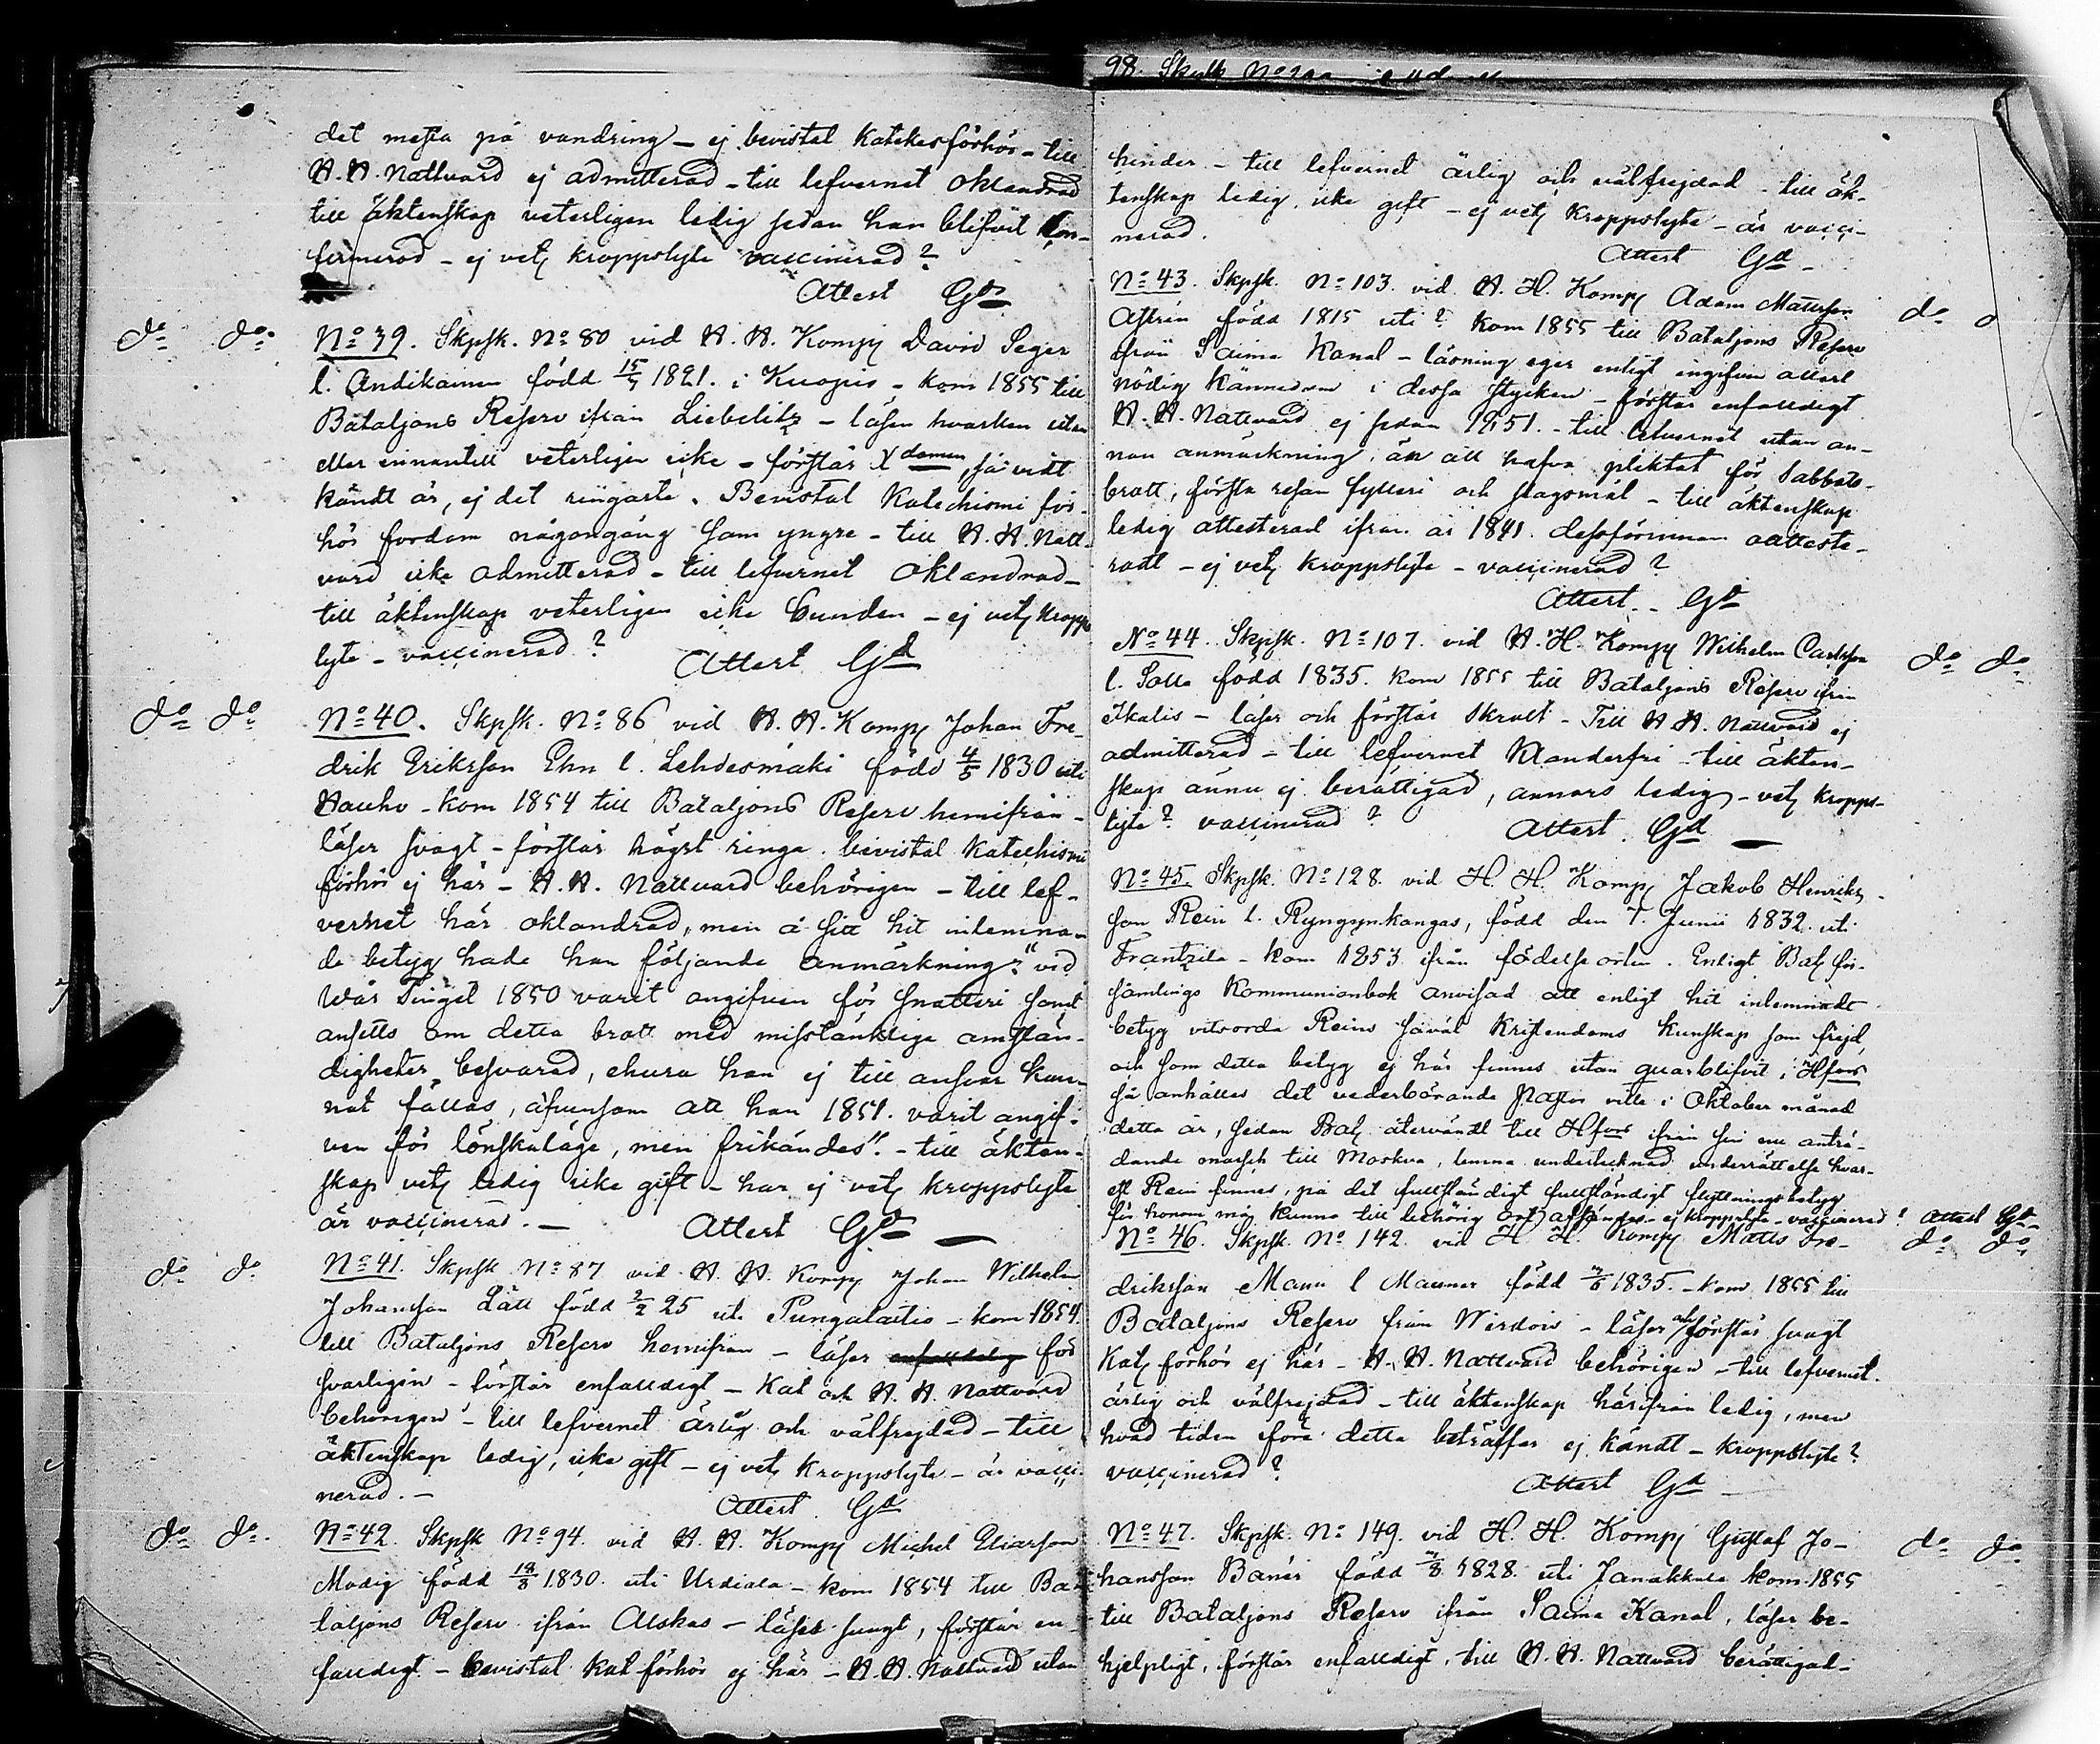 det mesta på vandring – ej bevistat Katekesförhör – till
H. H. Nattvard ej admitterad – till lefvernet oklandrad
till äktenskap veterligen ledig sedan han blifvit kon-
firmerad – ej vetl kroppslyte vaccinerad?
Attest Gd
do do No 39. Skpsk. No 80 vid H. H. Komp David Seger
l. Andikainen född 15/7 1821. i Kuopio – kom 1855 till
Bataljons Reserv ifrån Liebelitz – läsen hvarken utan
eller innantill veterligen icke – förstår Xdomen, så vidt
kändt är, ej det ringaste. Bevistat Katechismi för-
hör fordom någongång som yngre – till H. H. Natt-
vard icke admitterad – till lefvernet oklandrad –
till äktenskap veterligen icke bunden – ej vetl kropps
lyte – vaccinerad?
Attest Gd
do do No 40. Skpsk. No 86 vid H. H. Komp Johan Fre-
drik Eriksson Ehn l. Lehdesmäki född 4/5 1830 uti
Hauho – kom 1854 till Bataljons Reserv hemifrån –
läser svagt – förstår högst ringa. bevistat Katechismi
förhör ej här – H. H. Nattvard behörigen – till lef-
vernet här oklandrad, men å sitt hit inlemna-
de betyg hade han följande anmärkning: "vid
Wår Tinget 1850 varit angifven för snatteri samt
ansetts om detta brott med misstänklige omstän-
digheter besvarad, ehuru han ej till ansvar kun-
nat fällas, äfvensom att han 1851. varit angif-
ven för lönskaläge, men frikändes". – till äkten-
skap vetl ledig icke gift – har ej vetl kroppslyte
är vaccinerad. –
Attest Gd
do do No 41. Skpsk No 87 vid H. H. Komp Johan Wilhelm
Johansson Lätt född 2/2 25 uti Pungalaitio – kom 1854.
till Bataljons Reserv hemifrån – läser för
svarligen – förstår enfalldigt – Kat och H. H. Nattvard
behörigen – till lefvernet ärlig och välfrejdad – till
äktenskap ledig, icke gift – ej vetl kroppslyte – är vacci-
nerad. –
Attest. Gd
do do. No 42. Skpsk No 94. vid H. H. Komp Michel Eliasson
Modig född 19/8 1830. uti Urdiala – kom 1854 till Ba-
taljons Reserv ifrån Alskas – läser svagt, förstår en-
falldigt – bevistat kat förhör ej här – H. H. Nattvard utan
98. Skpsk No
hinder – till lefvernet ärlig och välfrejdad – till äk-
tenskap ledig, icke gift – ej vetl kroppslyte – är vacci-
nerad.
Attest Gd –
No 43. Skpsk. No 103. vid H. H. Komp Adam Mattsson do o
Astrén född 1815 uti? kom 1855 till Bataljons Reserv
ifrån Saima Kanal – läsning eger enligt ingifven attest
nödig kännedom i dessa stycken – förstår enfalldigt
H. H. Nattvard ej sedan 1851. – till lefvernet utan an-
nan anmärkning, än att hafva pliktat för Sabbats-
brott, första resan fylleri och slagsmål – till äktenskap
ledig attesterad ifrån år 1841. dessförinnan oatteste-
radt – ej vetl kroppslyte – vaccinerad?
Attest. – Gd
No 44. Skpsk. No 107. vid H. H. Komp Wilhelm Carlsson do do
l. Salls född 1835. kom 1855 till Bataljons Reserv ifrån
Ikalis – läser och förstår skralt – Till H. H. Nattvard ej
admitterad – till lefvernet klanderfri – till äkten-
skap ännu ej berättigad, annars ledig – vetl kropps-
lyte? vaccinerad?
Attest. Gd –
No 45. Skpsk. No 128. vid H. H. Komp Jakob Henriks-
son Rein l. Ryngynkangas, född den 7. Junii 1832. uti
Frantzila – kom 1853 ifrån födelse orten. Enligt Bat för-
samlings Kommunionbok anvisad att enligt hit inlemnadt
betyg vitsorda Reins såväl Kristendoms kunskap som frejd,
och som detta betyg ej här finnes utan quarblifvit i Hfors
så anhålles det vederbörande Pastor ville i Oktober månad
detta år, sedan Bat återvändt till Hfors ifrån sin nu anträ-
dande marsch till Moskva, lemna undertecknad underrättelse hvar-
est Rein finnes, på det fullständigt fullständigt flyttningsbetyg
för honom må kunna till behörig ort afsändas – ej kroppslyte – vaccinerad? Attest Gd –
No 46. Skpsk. No 142. vid H. H. Komp Matts Fre- do do
driksson Mann l Mauner född /6 1835. – kom 1855 till
Bataljons Reserv från Wirdois – läser och förstår svagt
Kat förhör ej här – H. H. Nattvard behörigen – till lefvernet.
ärlig och välfrejdad – till äktenskap härifrån ledig, men
hvad tiden före detta beträffar ej kändt – kroppslyte?
vaccinerad?
Attest Gd –
No 47. Skpsk. No 149. vid H. H. Komp Gustaf Jo- do do
hansson Banér född /8 1828. uti Janakkala kom 1855
till Bataljons Reserv ifrån Saima Kanal, läser be-
hjelpligt, förstår enfalldigt, till H. H. Nattvard berättigad –